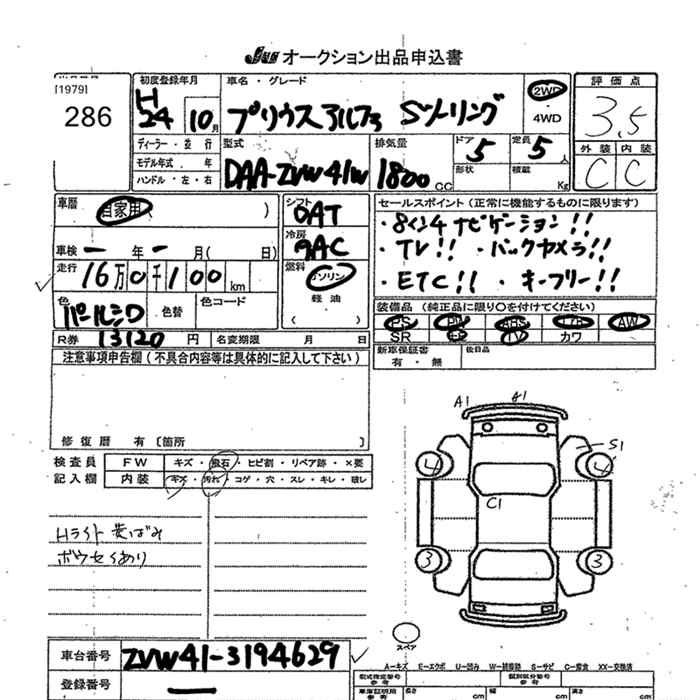 JU オークション出品申込書
[1979]
286
初度登録年月
H24 10月
車名・グレード
プリウスアルファ Sツーリング
2WD
4WD
評価点
3.5
ディーラー・並行
モデル年式 年
ハンドル・左・右
型式
DAA-ZVW41W
排気量
1800 CC
ドア 5
定員 5 人
形状
積載 Kg
外装 内装
C C
車歴
自家用 )
車検 ー 年 ー 月( 日)
走行 16万0千100 km
色
パールシロ
色替
色コード
シフト
DAT
冷房
AAC
燃料
ガソリン
軽油
( )
セールスポイント(正常に機能するものに限ります)
・8インチナビゲーション!!
・TV!! ・バックカメラ!!
・ETC!! ・キーフリー!!
装備品(純正品に限り○を付けてください)
PS PW ABS エアB AW
SR TV カワ
R券 13120 円 名変期限 月 日
新車保証書
有・無
後日品
注意事項申告欄(不具合内容等は具体的に記入して下さい)
修復歴 有〔箇所 〕
検査員
記入欄
FW キズ・飛石・ヒビ割・リペア跡・×要
内装 キズ・汚れ・コゲ・穴・スレ・キレ・破レ
Hライト黄ばみ
ボウセイあり
A1 A1
S1
4 4
C1
3 3
スペア
車台番号 ZVW41-3194629
登録番号 ー
A-キズ E-エクボ U-凹み W-補修跡 S-サビ C-腐食 XX-交換済
型式指定番号
参考
類別区分番号
参考
車庫証明用
参考
長さ cm
幅 cm
高さ cm